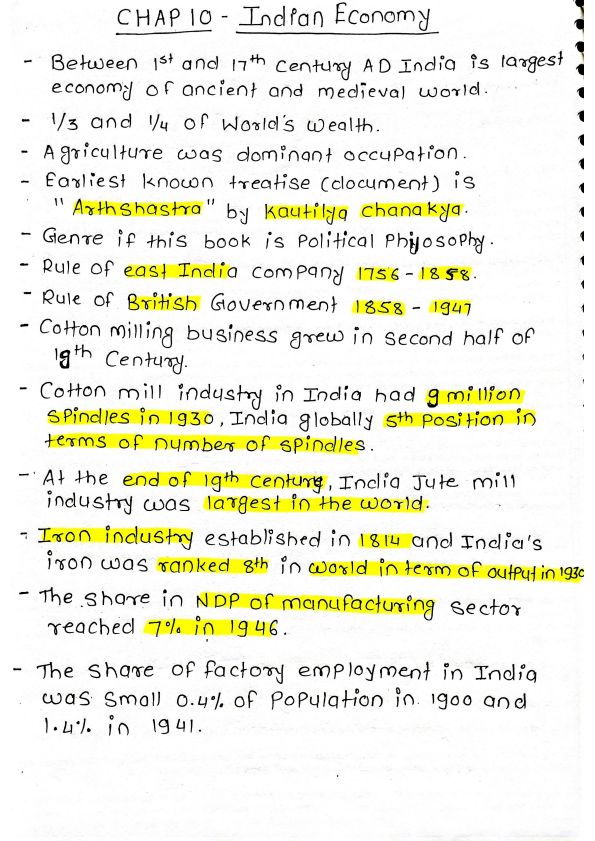 CHAP 10 - Indian Economy
- Between 1st and 17th Century AD India is largest
economy of ancient and medieval world.
- 1/3 and 1/4 of World's Wealth.
- Agriculture was dominant occupation.
- Earliest known treatise (document) is
"Arthshastra" by Kautilya chanakya.
- Genre if this book is Political Phiyosophy.
- Rule of east India company 1756 - 1858.
- Rule of British Government 1858 - 1947
- Cotton milling business grew in second half of
19th Century.
- Cotton mill industry in India had 9 million
Spindles in 1930, India globally 5th Position in
terms of number of spindles.
- At the end of 19th Century, India Jute mill
industry was largest in the world.
- Iron industry established in 1814 and India's
iron was ranked 8th in world in term of output in 1930
- The share in NDP of manufacturing sector
reached 7% in 1946.
- The share of factory employment in India
was small 0.4% of Population in 1900 and
1.4% in 1941.